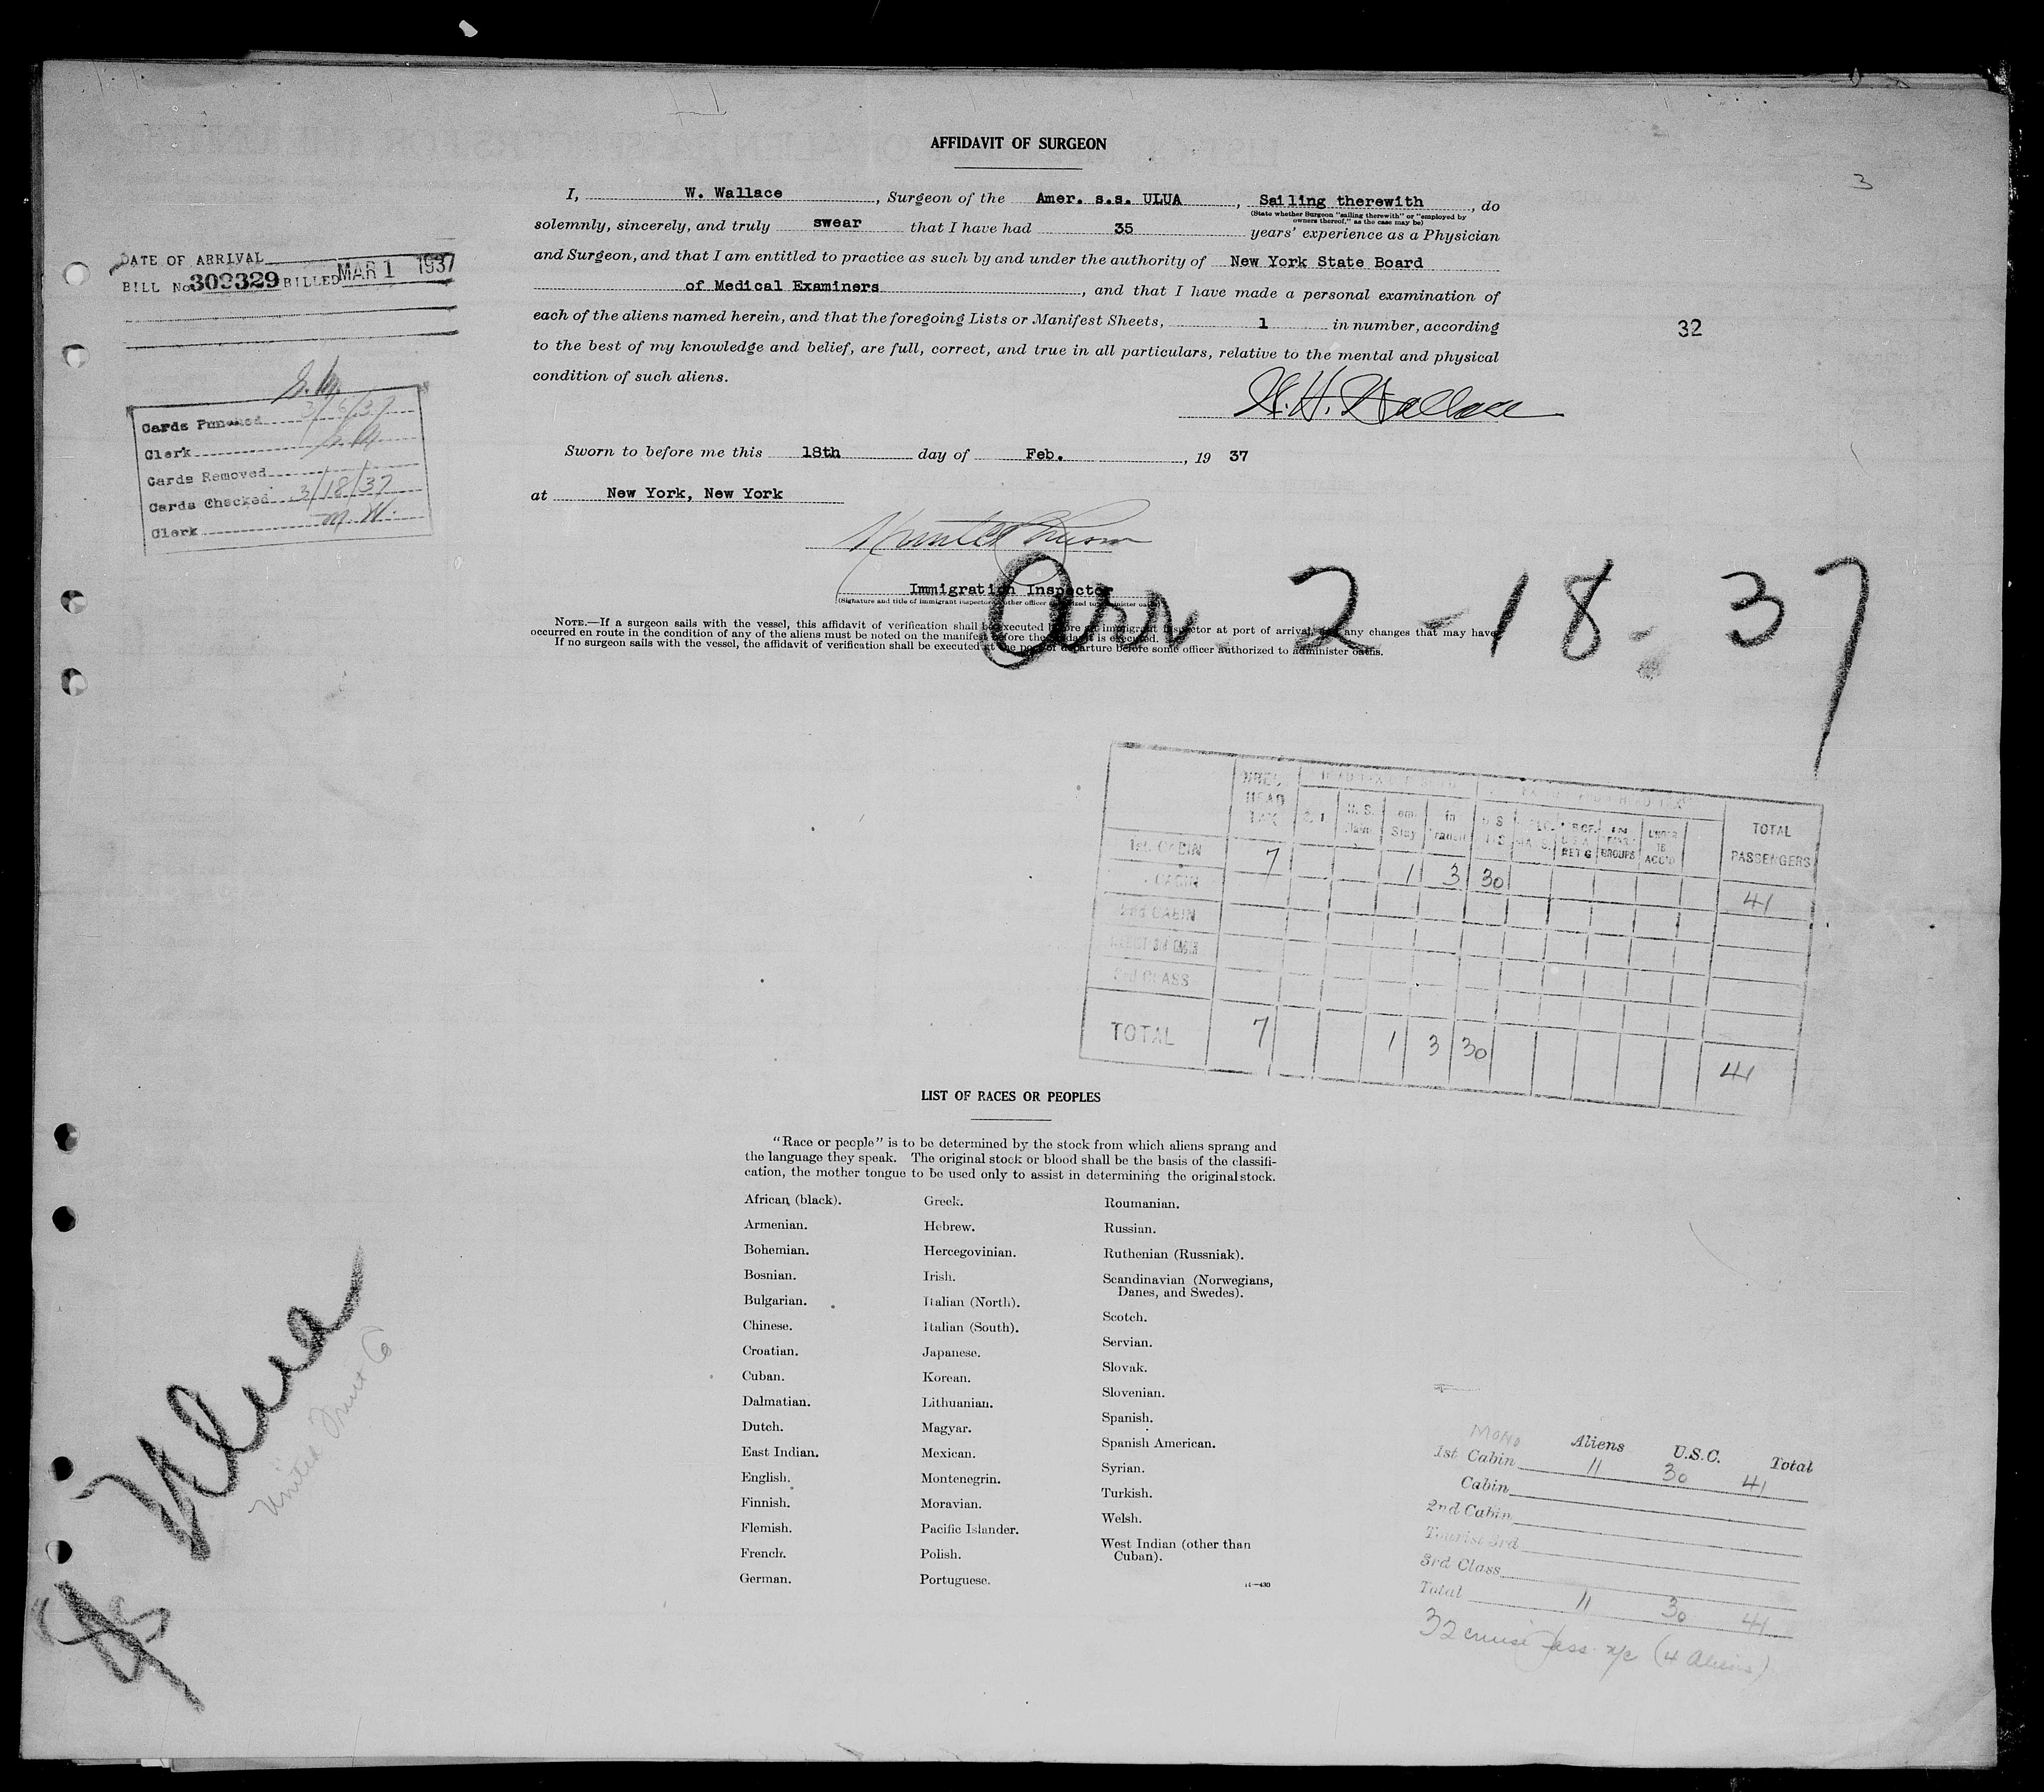 3
AFFIDAVIT OF SURGEON
I, W. Wallace, Surgeon of the Amer. s.s. ULUA, Sailing therewith, do
(State whether Surgeon "sailing therewith" or "employed by
owners thereof," as the case may be)
solemnly, sincerely, and truly swear that I have had 35 years' experience as a Physician
and Surgeon, and that I am entitled to practice as such by and under the authority of New York State Board
of Medical Examiners, and that I have made a personal examination of
each of the aliens named herein, and that the foregoing Lists or Manifest Sheets, 1 in number, according
to the best of my knowledge and belief, are full, correct, and true in all particulars, relative to the mental and physical
condition of such aliens.
32
W. H. Wallace
Sworn to before me this 18th day of Feb., 19 37
at New York, New York
Immigration Inspector
(Signature and title of immigrant inspector or other officer authorized to administer oaths)
NOTE.—If a surgeon sails with the vessel, this affidavit of verification shall be executed before an immigrant inspector at port of arrival, any changes that may have
occurred en route in the condition of any of the aliens must be noted on the manifest before the affidavit is executed.
If no surgeon sails with the vessel, the affidavit of verification shall be executed at the port of departure before some officer authorized to administer oaths.
Arr. 2-18-37
DATE OF ARRIVAL
BILL No 309329 BILLED MAR 1 1937
Cards Punched 3/6/37
Clerk
Cards Removed
Cards Checked 3/18/37
Clerk M. W.
HEAD TAX
U.S. Stay in TOTAL PASSENGERS
RET'G GROUPS UNDER 16 ACC'D
1st. CABIN 7 1 3 30 41
CABIN
2nd CABIN
3rd CLASS
TOTAL 7 1 3 30 41
LIST OF RACES OR PEOPLES
"Race or people" is to be determined by the stock from which aliens sprang and
the language they speak. The original stock or blood shall be the basis of the classifi-
cation, the mother tongue to be used only to assist in determining the original stock.
African (black).
Armenian.
Bohemian.
Bosnian.
Bulgarian.
Chinese.
Croatian.
Cuban.
Dalmatian.
Dutch.
East Indian.
English.
Finnish.
Flemish.
French.
German.
Greek.
Hebrew.
Hercegovinian.
Irish.
Italian (North).
Italian (South).
Japanese.
Korean.
Lithuanian.
Magyar.
Mexican.
Montenegrin.
Moravian.
Pacific Islander.
Polish.
Portuguese.
Roumanian.
Russian.
Ruthenian (Russniak).
Scandinavian (Norwegians,
Danes, and Swedes).
Scotch.
Servian.
Slovak.
Slovenian.
Spanish.
Spanish American.
Syrian.
Turkish.
Welsh.
West Indian (other than
Cuban).
14—430
Ulua
United Fruit Co
MONO Aliens U.S.C. Total
1st Cabin 11 30 41
Cabin
2nd Cabin
Tourist 3rd
3rd Class
Total 11 30 41
32 cruise pass. n/c (4 Aliens)